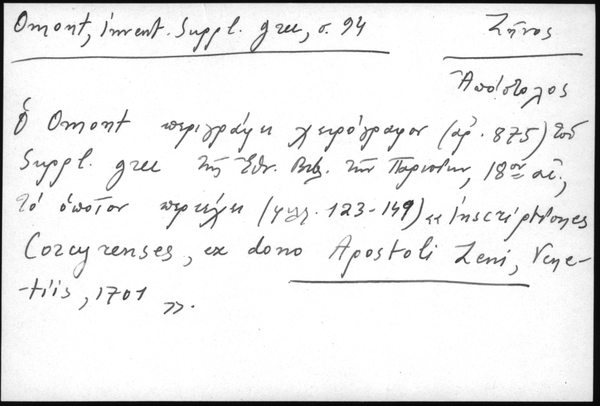 Omont, invent. Suppl. grec, σ. 94
Ζῆνος
Ἀπόστολος
Ὁ Omont περιγράφει χειρόγραφον (ἀρ. 875) τοῦ
Suppl. grec τῆς Ἐθν. Βιβ. τῶν Παρισίων, 18ου αἰ.,
τό ὁποῖον περιέχει (φυλ. 123-149) «Inscriptiones
Corcyrenses, ex dono Apostoli Zeni, Vene-
-tiis, 1701».